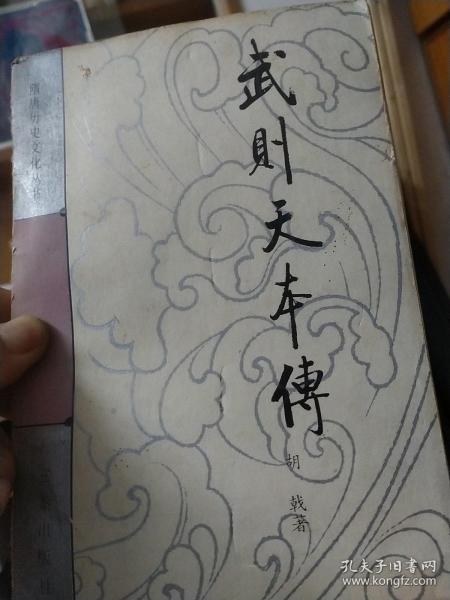 武則天本傳
胡戟著
隋唐历史文化丛书
出版社
孔夫子旧书网
www.kongfz.com